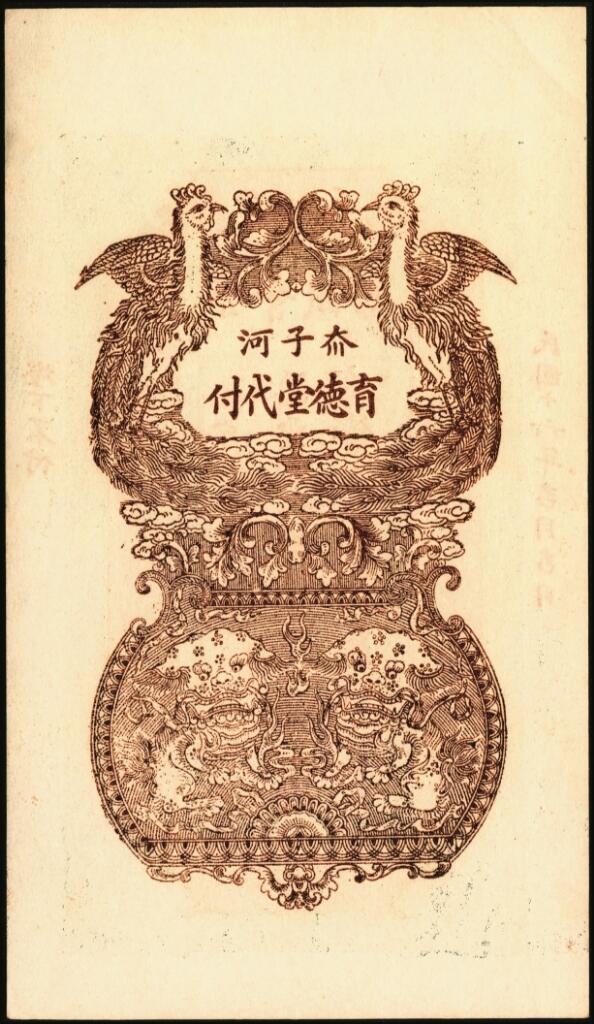 夼子河
育德堂代付